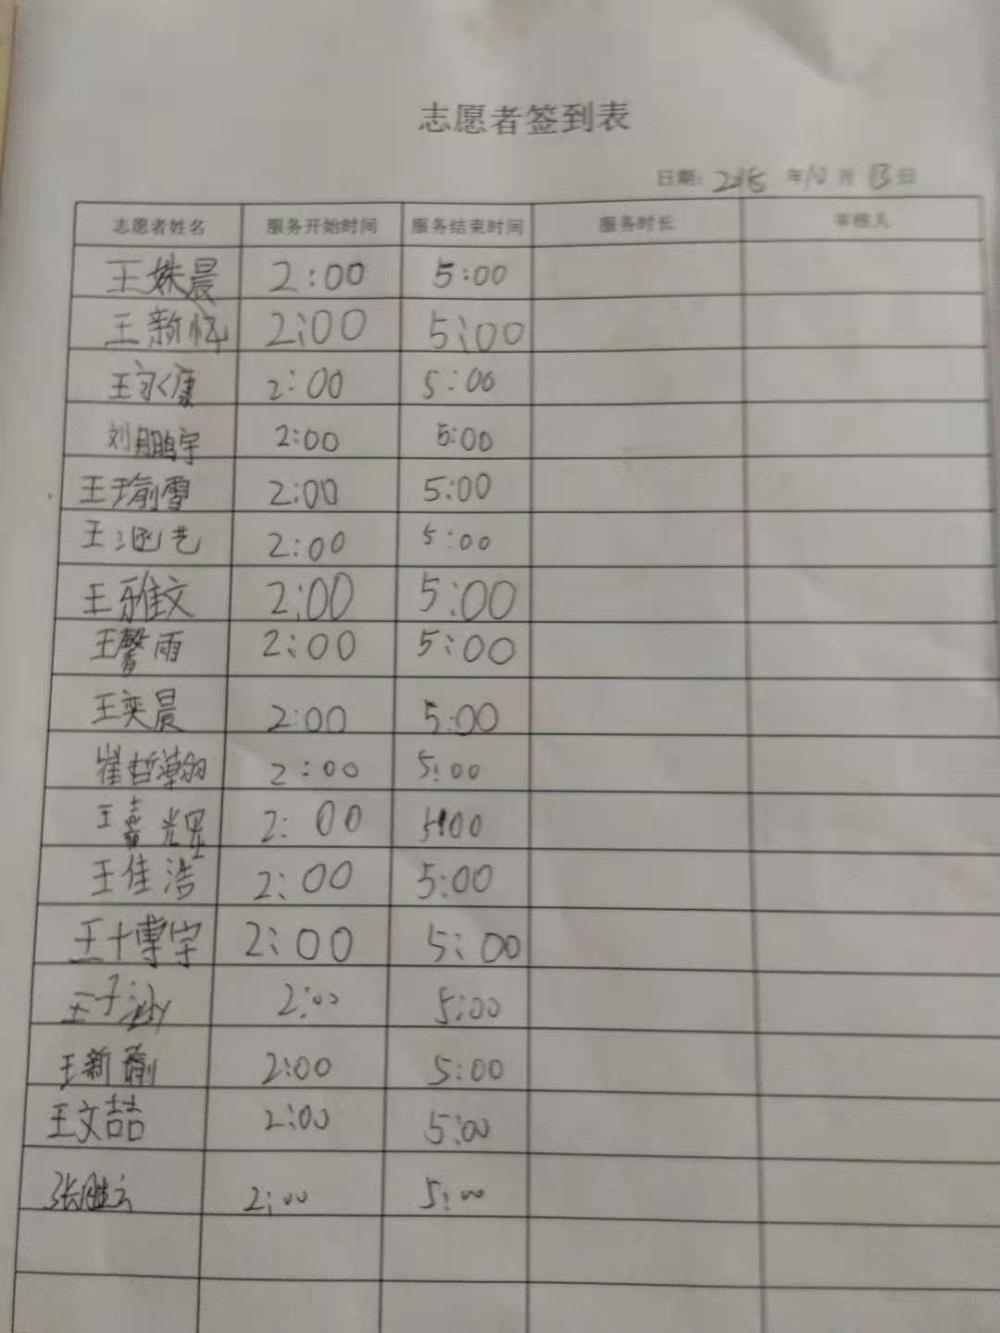 志愿者签到表
日期: 2018 年 10 月 13 日
志愿者姓名 服务开始时间 服务结束时间 服务时长 审核人
王姝晨 2:00 5:00
王新忆 2:00 5:00
王永康 2:00 5:00
刘鹏宇 2:00 5:00
王瑜雪 2:00 5:00
王涵艺 2:00 5:00
王雅文 2:00 5:00
王馨雨 2:00 5:00
王奕晨 2:00 5:00
崔哲瀚 2:00 5:00
王嘉耀 2:00 5:00
王佳浩 2:00 5:00
王博宇 2:00 5:00
王子 2:00 5:00
王新 2:00 5:00
王文喆 2:00 5:00
张胜云 2:00 5:00